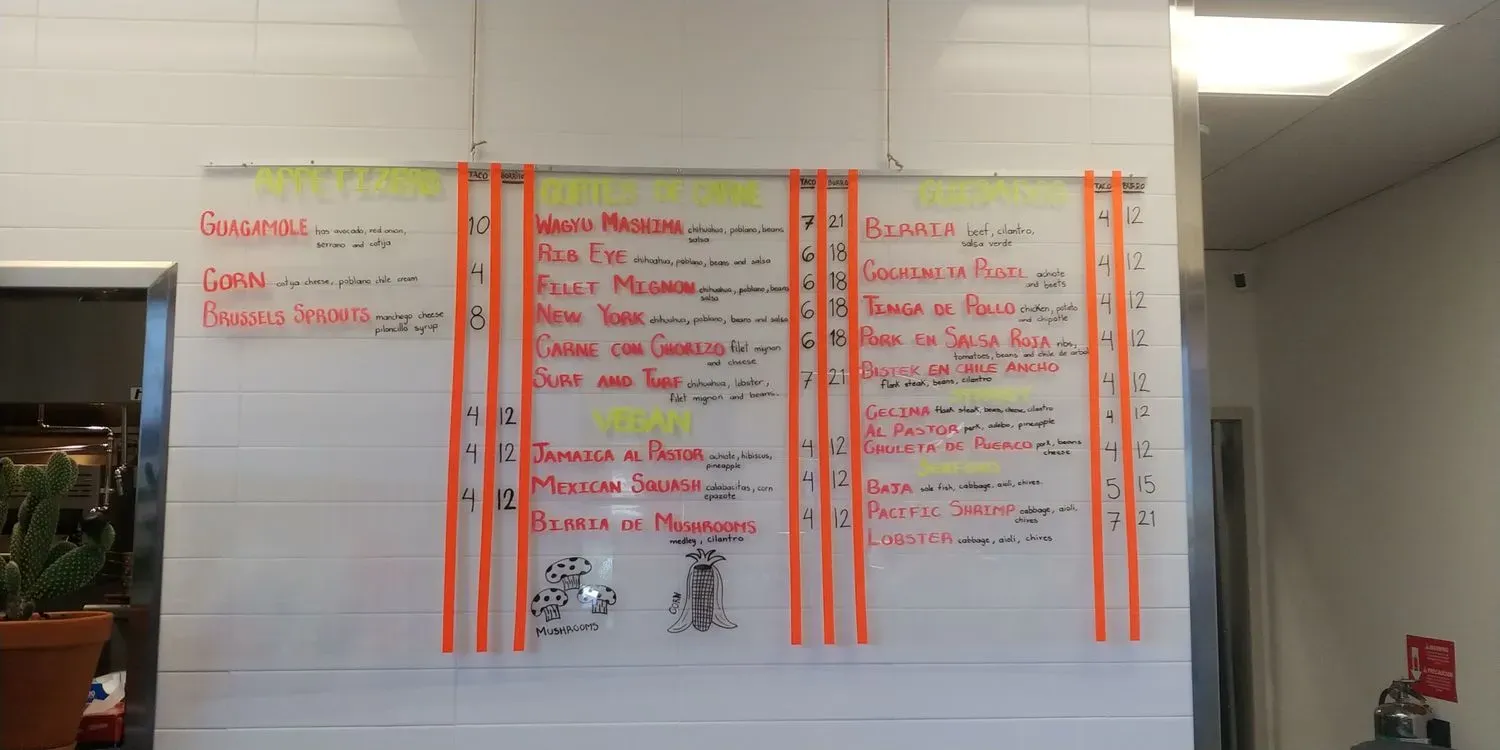 APPETIZERS
TACO BURRITO
GUAGAMOLE has avocado, red onion, 10
serrano and cotija
CORN cotija cheese, poblano chile cream 4
BRUSSELS SPROUTS manchego cheese 8
piloncillo syrup
4 12
4 12
4 12
CORTES DE CARNE
TACO BURRO
WAGYU MASHIMA chihuahua, poblano, beans 7 21
salsa
RIB EYE chihuahua, poblano, beans and salsa 6 18
FILET MIGNON chihuahua, poblano, beans 6 18
salsa
NEW YORK chihuahua, poblano, beans and salsa 6 18
CARNE CON CHORIZO filet mignon 6 18
and cheese
SURF AND TURF chihuahua, lobster, 7 21
filet mignon and beans.
VEGAN
JAMAICA AL PASTOR achiote, hibiscus, 4 12
pineapple
MEXICAN SQUASH calabacitas, corn 4 12
epazote
BIRRIA DE MUSHROOMS 4 12
medley, cilantro
MUSHROOMS
CORN
GUISADOS
TACO BURRO
BIRRIA beef, cilantro, 4 12
salsa verde
COCHINITA PIBIL achiote 4 12
and beets
TINGA DE POLLO chicken, potato 4 12
and chipotle
PORK EN SALSA ROJA ribs, 4 12
tomatoes, beans and chile de arbol
BISTEK EN CHILE ANCHO 4 12
flank steak, beans, cilantro
STREET
CECINA flank steak, beans, cheese, cilantro 4 12
AL PASTOR pork, adobo, pineapple
CHULETA DE PUERCO pork, beans 4 12
cheese
SEAFOOD
BAJA sole fish, cabbage, aioli, chives 5 15
PACIFIC SHRIMP cabbage, aioli, 7 21
chives
LOBSTER cabbage, aioli, chives